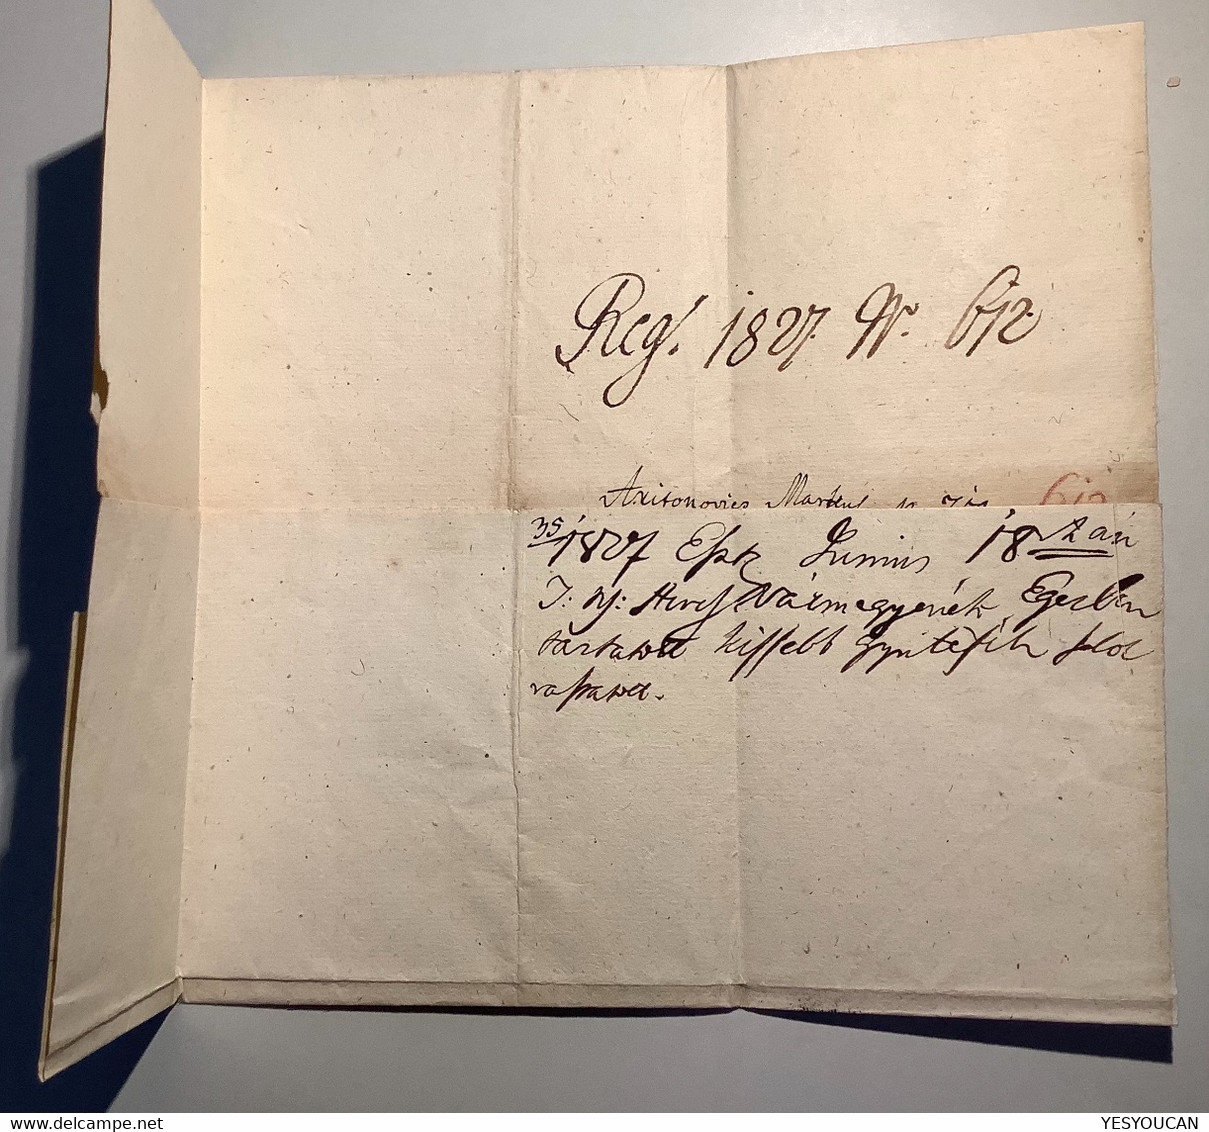 Reg. 1827. Nr. 612
Axitonovics Markus 612
35/1827 Eszt. Junius 18 kán
T: N: Heves Vármegyének Egerben
tartatott kissebb Gyüléséb